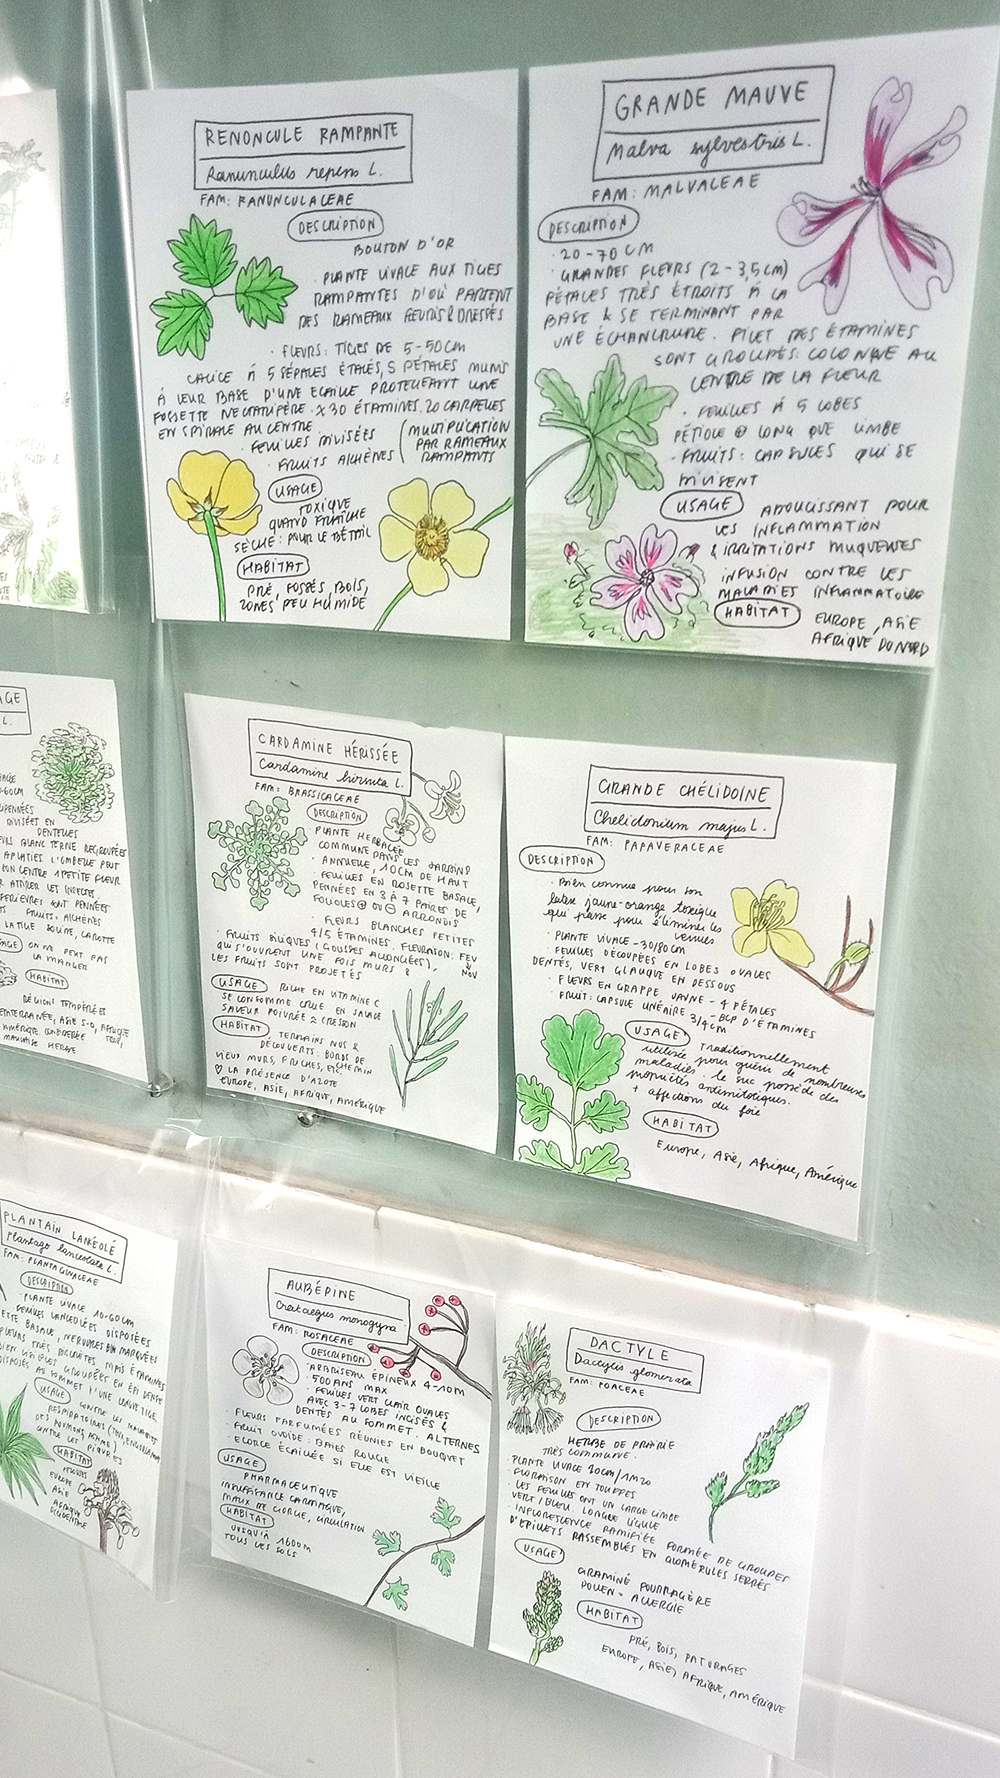 RENONCULE RAMPANTE
Ranunculus repens L.
FAM: RANUNCULACEAE
DESCRIPTION
BOUTON D'OR
· PLANTE VIVACE AUX TIGES
RAMPANTES D'OÙ PARTENT
DES RAMEAUX FLEURIS & DRESSÉS
· FLEURS: TIGES DE 5-50CM
CALICE À 5 SÉPALES ÉTALÉS, 5 PÉTALES MUNIS
À LEUR BASE D'UNE ECAILLE PROTEGEANT UNE
FOSSETTE NECTARIFÈRE. X 30 ÉTAMINES. 20 CARPELLES
EN SPIRALE AU CENTRE
· FEUILLES DIVISÉES
· FRUITS AKHÈNES
(MULTIPLICATION
PAR RAMEAUX
RAMPANTS
USAGE
TOXIQUE
QUAND FRAÎCHE
SÈCHE: POUR LE BÉTAIL
HABITAT
PRÉ, FOSSÉS, BOIS,
ZONES PEU HUMIDE
GRANDE MAUVE
Malva sylvestris L.
FAM: MALVACEAE
DESCRIPTION
· 20-70 CM
· GRANDES FLEURS (2-3,5 CM)
PÉTALES TRÈS ÉTROITS À LA
BASE & SE TERMINANT PAR
UNE ÉCHANCRURE. FILET DES ÉTAMINES
SONT GROUPÉS: COLONNE AU
CENTRE DE LA FLEUR
· FEUILLES À 5 LOBES
PÉTIOLE ⊕ LONG QUE LIMBE
- FRUITS: CAPSULES QUI SE
DIVISENT
USAGE ADOUCISSANT POUR
LES INFLAMMATION
& IRRITATIONS MUQUEUSES
INFUSION CONTRE LES
MALADIES INFLAMMATOIRE
HABITAT EUROPE, ASIE
AFRIQUE DU NORD
AGE
L.
-60CM
DIVISÉES EN
DENTELLES
BLANC TERNE REGROUPÉES
APLATIES. L'OMBELLE PEUT
SON CENTRE 1 PETITE FLEUR
ATTIRER LES INSECTES
SONT PENNÉES
FRUITS: AKHÈNES
LA TIGE CAROTTE
ON NE PEUT PAS
LA MANGER
HABITAT
RÉGIONS TEMPÉRÉES
ASIE S-O, AFRIQUE
MAUVAISE HERBE
CARDAMINE HÉRISSÉE
Cardamine hirsuta L.
FAM: BRASSICACEAE
DESCRIPTION
PLANTE HERBACÉE
COMMUNE DANS LES JARDINS
· ANNUELLE, 10CM DE HAUT
· FEUILLES EN ROSETTE BASALE,
PENNÉES EN 3 À 7 PAIRES DE
FOLIOLES ⊕ OU ⊖ ARRONDIS
· FLEURS BLANCHES PETITES
4/5 ÉTAMINES. FLORAISON: FEV
NOV
· FRUITS SILIQUES (GOUSSES ALLONGÉES),
QUI S'OUVRENT UNE FOIS MURS &
LES FRUITS SONT PROJETÉS
USAGE RICHE EN VITAMINE C
SE CONSOMME CRUE EN SALADE
SAVEUR POIVRÉE ≃ CRESSON
HABITAT TERRAINS NUS &
DÉCOUVERTS: BORDS DE
VIEUX MURS, FRICHES, CHEMIN
♡ LA PRÉSENCE D'AZOTE
EUROPE, ASIE, AFRIQUE, AMÉRIQUE
GRANDE CHÉLIDOINE
Chelidonium majus L.
FAM: PAPAVERACEAE
DESCRIPTION
· Bien connue pour son
latex jaune-orange toxique
qui passe pour éliminer les
verrues
· PLANTE VIVACE - 30/80CM
· FEUILLES DÉCOUPÉES EN LOBES OVALES
DENTÉS, VERT GLAUQUE EN DESSOUS
· FLEURS EN GRAPPE JAUNE - 4 PÉTALES
- BCP D'ÉTAMINES
· FRUIT: CAPSULE LINÉAIRE 3/4CM
USAGE Traditionnellement
utilisée pour guérir de nombreuses
maladies. le suc possède des
propriétés antimitotiques.
+ affections du foie
HABITAT
Europe, Asie, Afrique, Amérique
PLANTAIN LANCÉOLÉ
Plantago lanceolata L.
FAM: PLANTAGINACEAE
DESCRIPTION
· PLANTE VIVACE 10-60CM
FEUILLES LANCÉOLÉES DISPOSÉES
BASALE, NERVURES BIEN MARQUÉES
FLEURS TRÈS DISCRÈTES MAIS ÉTAMINES
BIEN VISIBLES GROUPÉES EN ÉPI DENSE
DISPOSÉS AU SOMMET D'UNE LONGUE TIGE
USAGE
CONTRE LES MALADIES
RESPIRATOIRES
CONTRE LES PIQURES
HABITAT
EUROPE
ASIE
AFRIQUE
AUBÉPINE
Crataegus monogyna
FAM: ROSACEAE
DESCRIPTION
· ARBRISEAU ÉPINEUX 4-10M
· 500 ANS MAX
· FEUILLES VERT CLAIR OVALES
AVEC 3-7 LOBES INCISÉS &
DENTÉS AU SOMMET. ALTERNES
· FLEURS PARFUMÉES RÉUNIES EN BOUQUET
· FRUIT OVOÏDE: BAIES ROUGE
· ECORCE ÉCAILLÉE SI ELLE EST VIEILLE
USAGE
PHARMACEUTIQUE
INSUFFISANCE CARDIAQUE,
MAUX DE GORGE, CIRCULATION
HABITAT
JUSQU'À 1600M
TOUS LES SOLS
DACTYLE
Dactylis glomerata
FAM: POACEAE
DESCRIPTION
HERBE DE PRAIRIE
TRÈS COMMUNE.
· PLANTE VIVACE 20CM/1M20
· FLORAISON EN TOUFFES
· LES FEUILLES ONT UN LARGE LIMBE
VERT/BLEU. LONGUE LIGULE
· INFLORESCENCE RAMIFIÉE FORMÉE DE GROUPES
D'ÉPILLETS RASSEMBLÉS EN GLOMÉRULES SERRÉS
USAGE
GRAMINÉ FOURRAGÈRE
POLLEN - ALLERGIE
HABITAT
PRÉ, BOIS, PATURAGES
EUROPE, ASIE, AFRIQUE, AMÉRIQUE